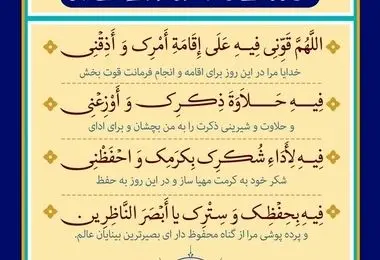 اللَّهُمَّ قَوِّنِی فِیهِ عَلَی إِقَامَةِ أَمْرِکَ وَ أَذِقْنِی
خدایا مرا در این روز برای اقامه و انجام فرمانت قوت بخش
فِیهِ حَلاوَةَ ذِکْرِکَ وَ أَوْزِعْنِی
و حلاوت و شیرینی ذکرت را به من بچشان و برای ادای
فِیهِ لِأَدَاءِ شُکْرِکَ بِکَرَمِکَ وَ احْفَظْنِی
شکر خود به کرمت مهیا ساز و در این روز به حفظ
فِیهِ بِحِفْظِکَ وَ سِتْرِکَ یا أَبْصَرَ النَّاظِرِین
و پرده پوشی مرا از گناه محفوظ دار ای بصیرترین بینایان عالم.